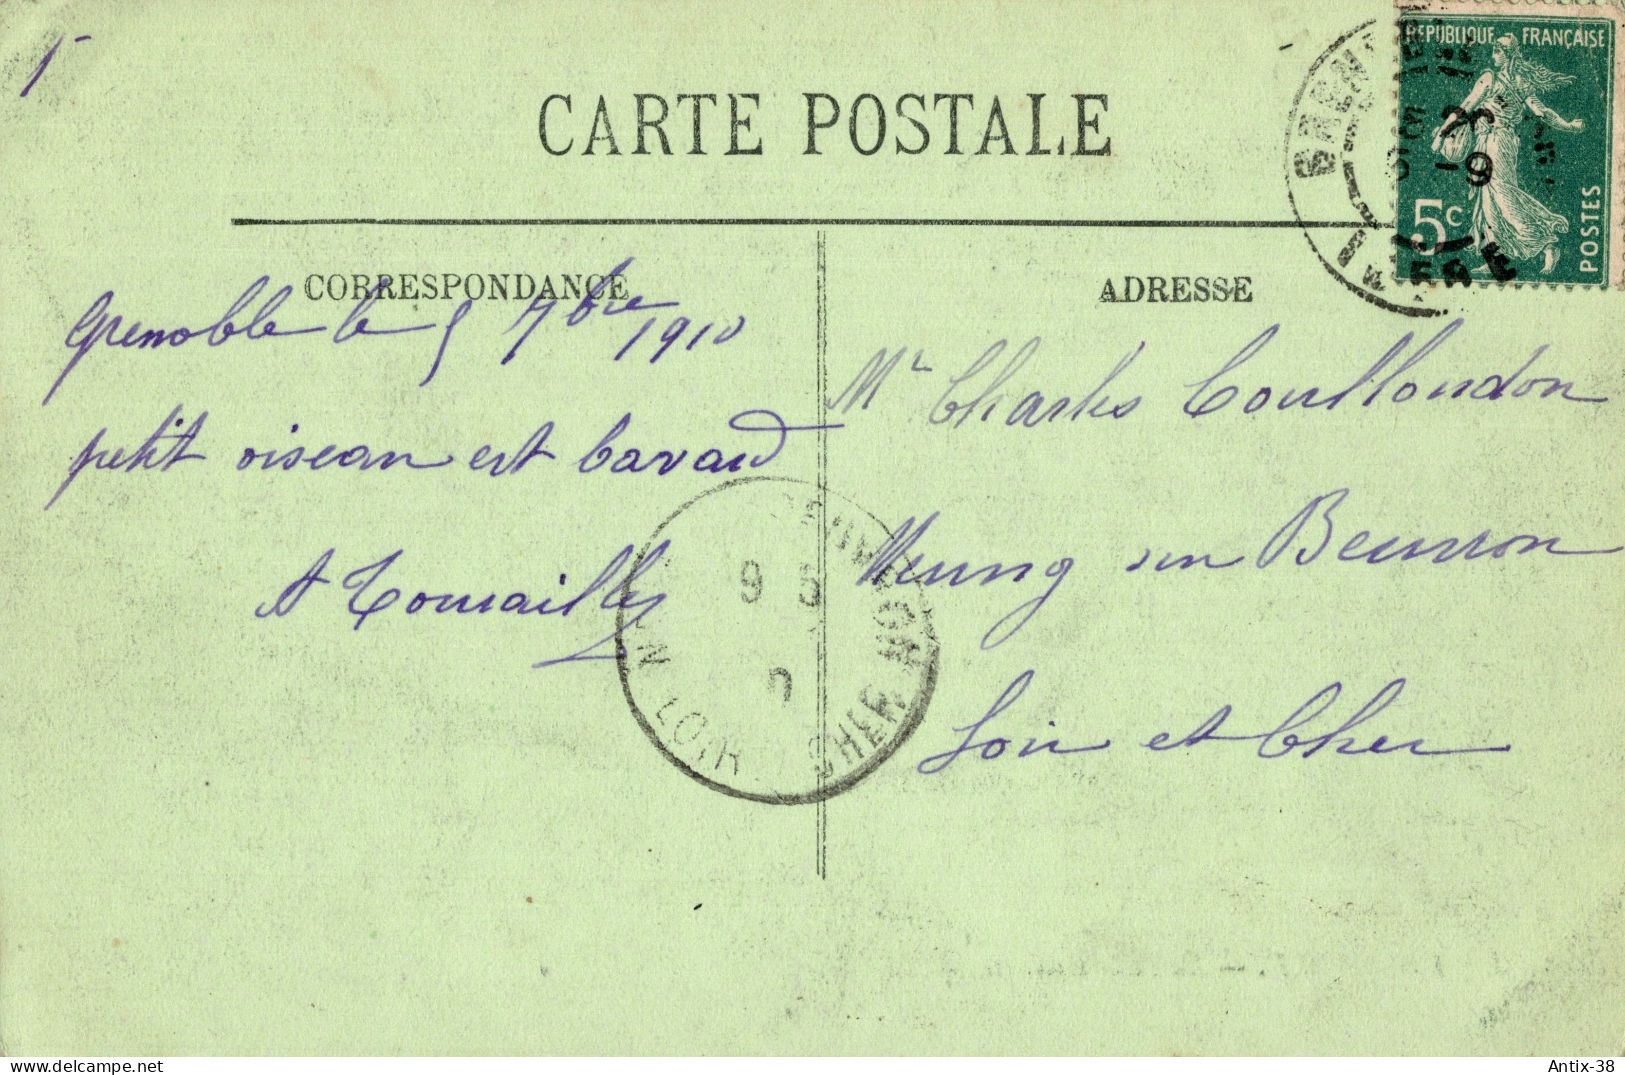 CARTE POSTALE
RÉPUBLIQUE FRANÇAISE
5c
POSTES
CORRESPONDANCE
Grenoble le 5 7bre 1910
petit oiseau est bavard
A Tourailles
LOIR CHER
9 5
ADRESSE
Mr Charles Coulloudon
Neung sur Beuvron
Loir et Cher
Antix-38